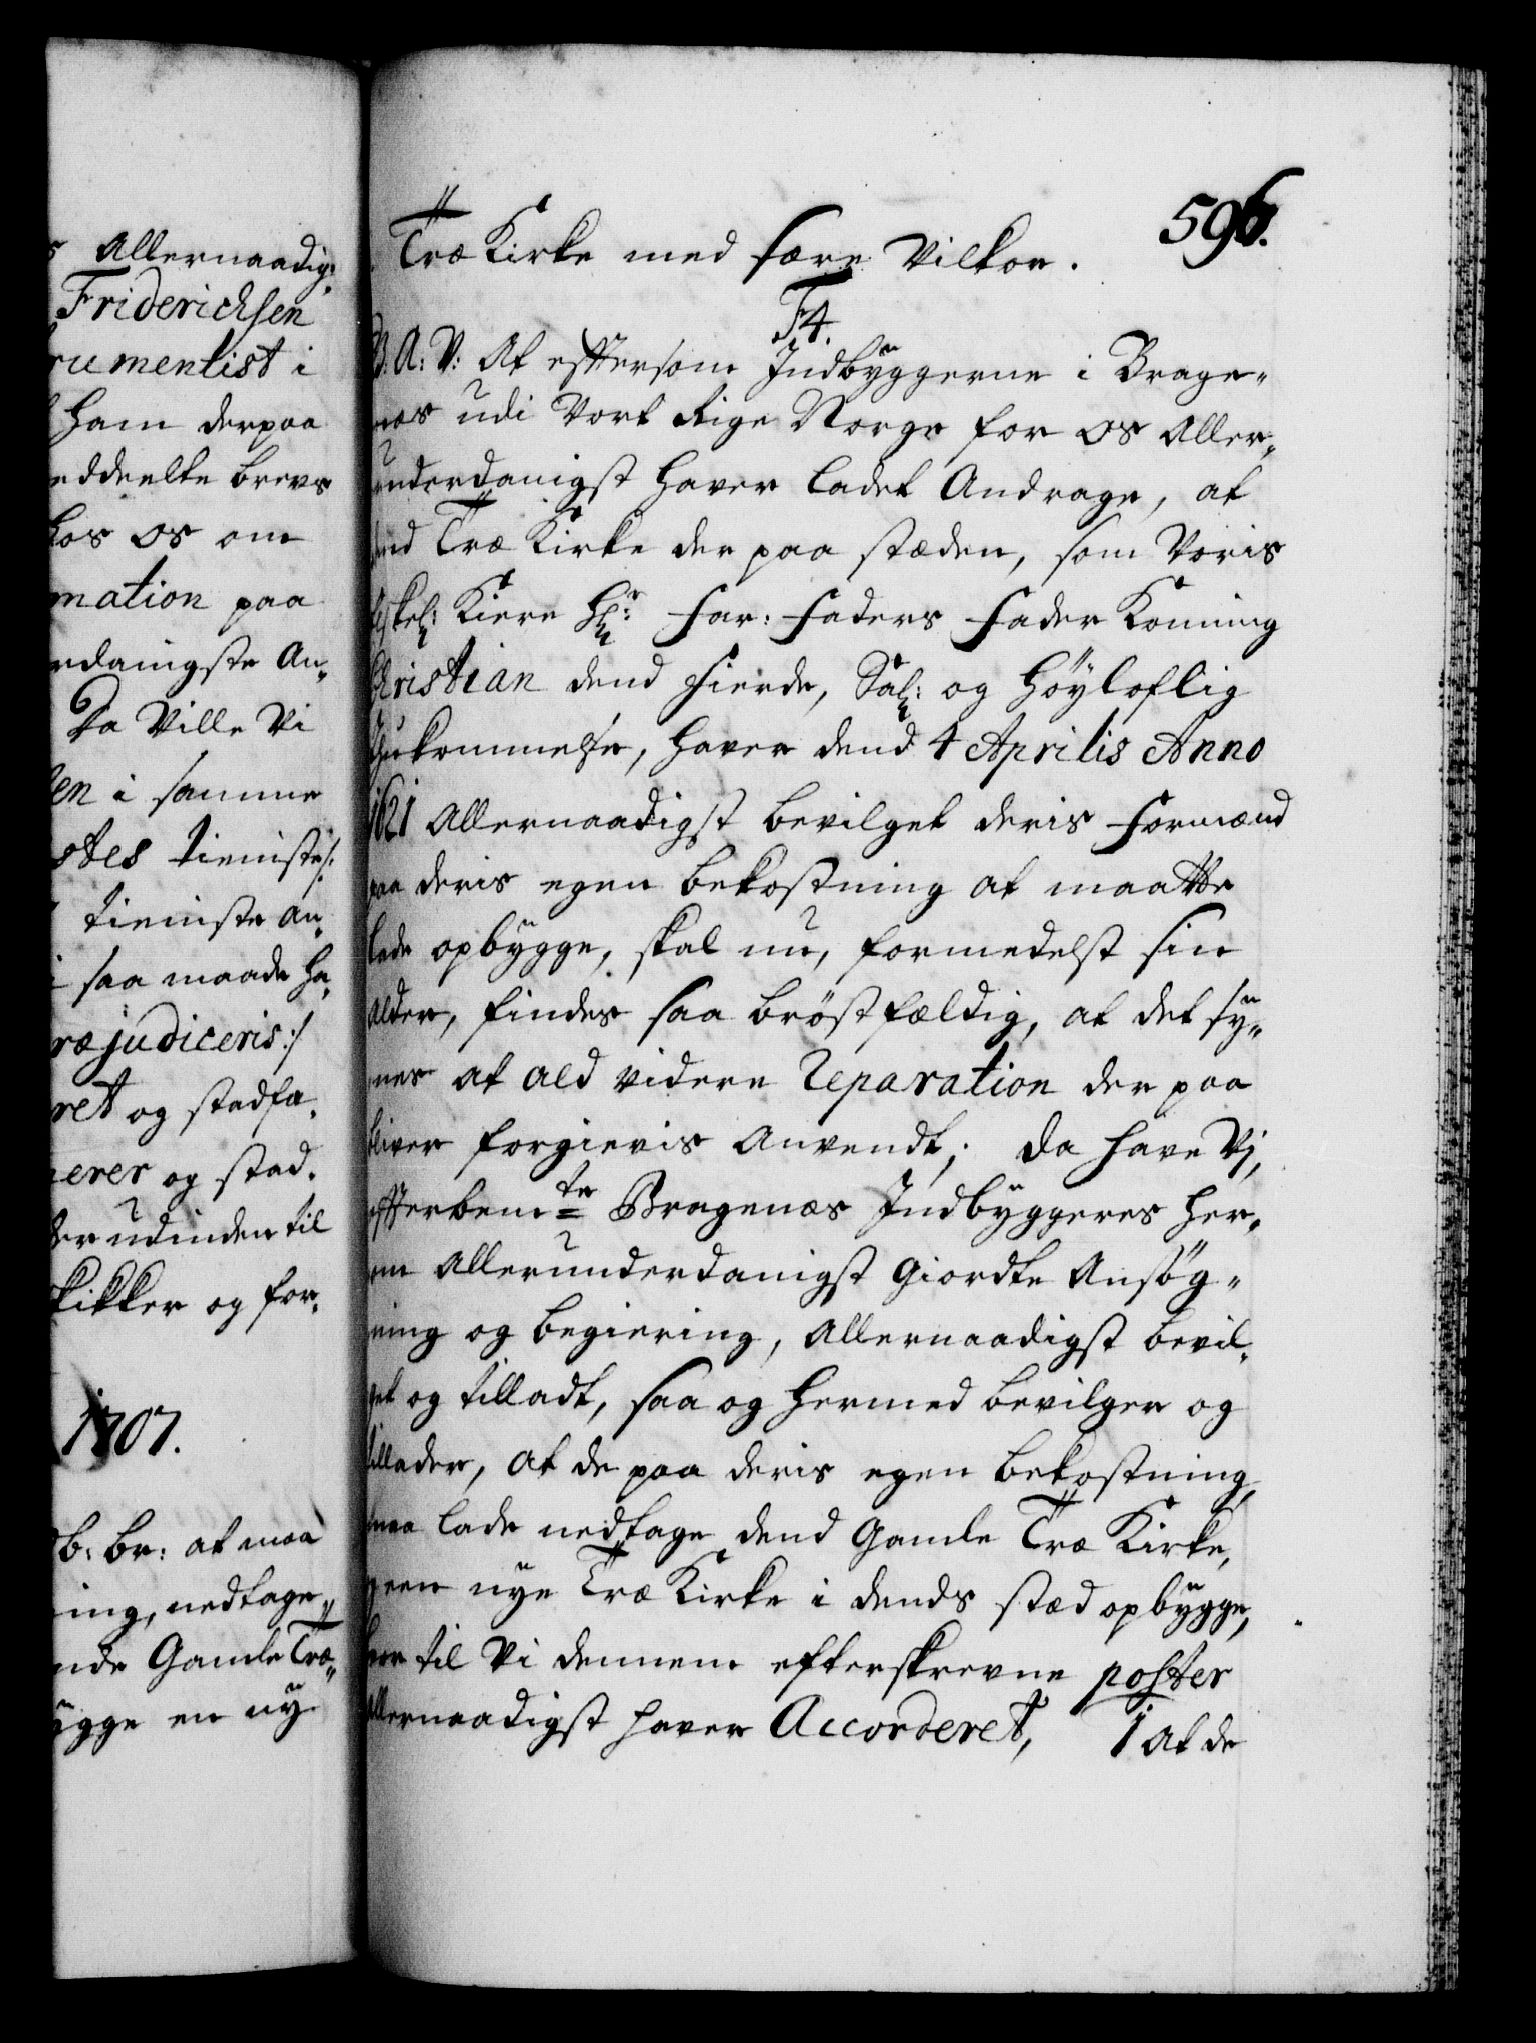 Allernaadig-
Friderichsen
rumentist i
ham derpaa
eddeelte brevs
hos os om
mation paa
rdanigste An-
Da Ville Vi
en i samme
stes tieniste/:
tieniste an-
saa maade ha-
ræjudiceris:/
ret og stadfæ-
erer og stad-
der udinden til
skikker og for-
1707.
b: br: at maa
ning, nedtage
nde Gamle Træ-
ygge en ny
596.
Træ Kirke med fære Vilkor.
F4.
V: A: V: At effterson Indbyggerne i Brage-
næs udi Vort Rige Norge for os Aller-
underdanigst haver ladet Andrage, at
dend Træ Kirke der paa stæden, som Voris
Elskel: Kiere Hr: Far: Faders Fader Konning
Christian dend Fierde, Sal: og Höyloflig
Ihukommelse, haver dend 4 Aprilis Anno
1621 Allernaadigst bevilget deris Formænd
paa deris egen bekostning at maatte
lade opbygge, skal nu, formedelst sin
alder, findes saa bröstfældig, at det sy-
nes at ald videre Reparation der paa
bliver forgievis Anvendt; da have Vj,
effterbemte Bragenæs Indbyggeres her-
om Allerunderdanigst giordte Ansög-
ning og begiering, Allernaadigst bevil-
get og tilladt, saa og hermed bevilger og
tillader, at de paa deris egen bekostning
maa lade nedtage dend Gamle Træ Kirke,
og een nye Træ Kirke i dends stæd opbygge,
hvor til Vi dennem efterskrevne poster
Allernaadigst haver Accorderet, 1 At de